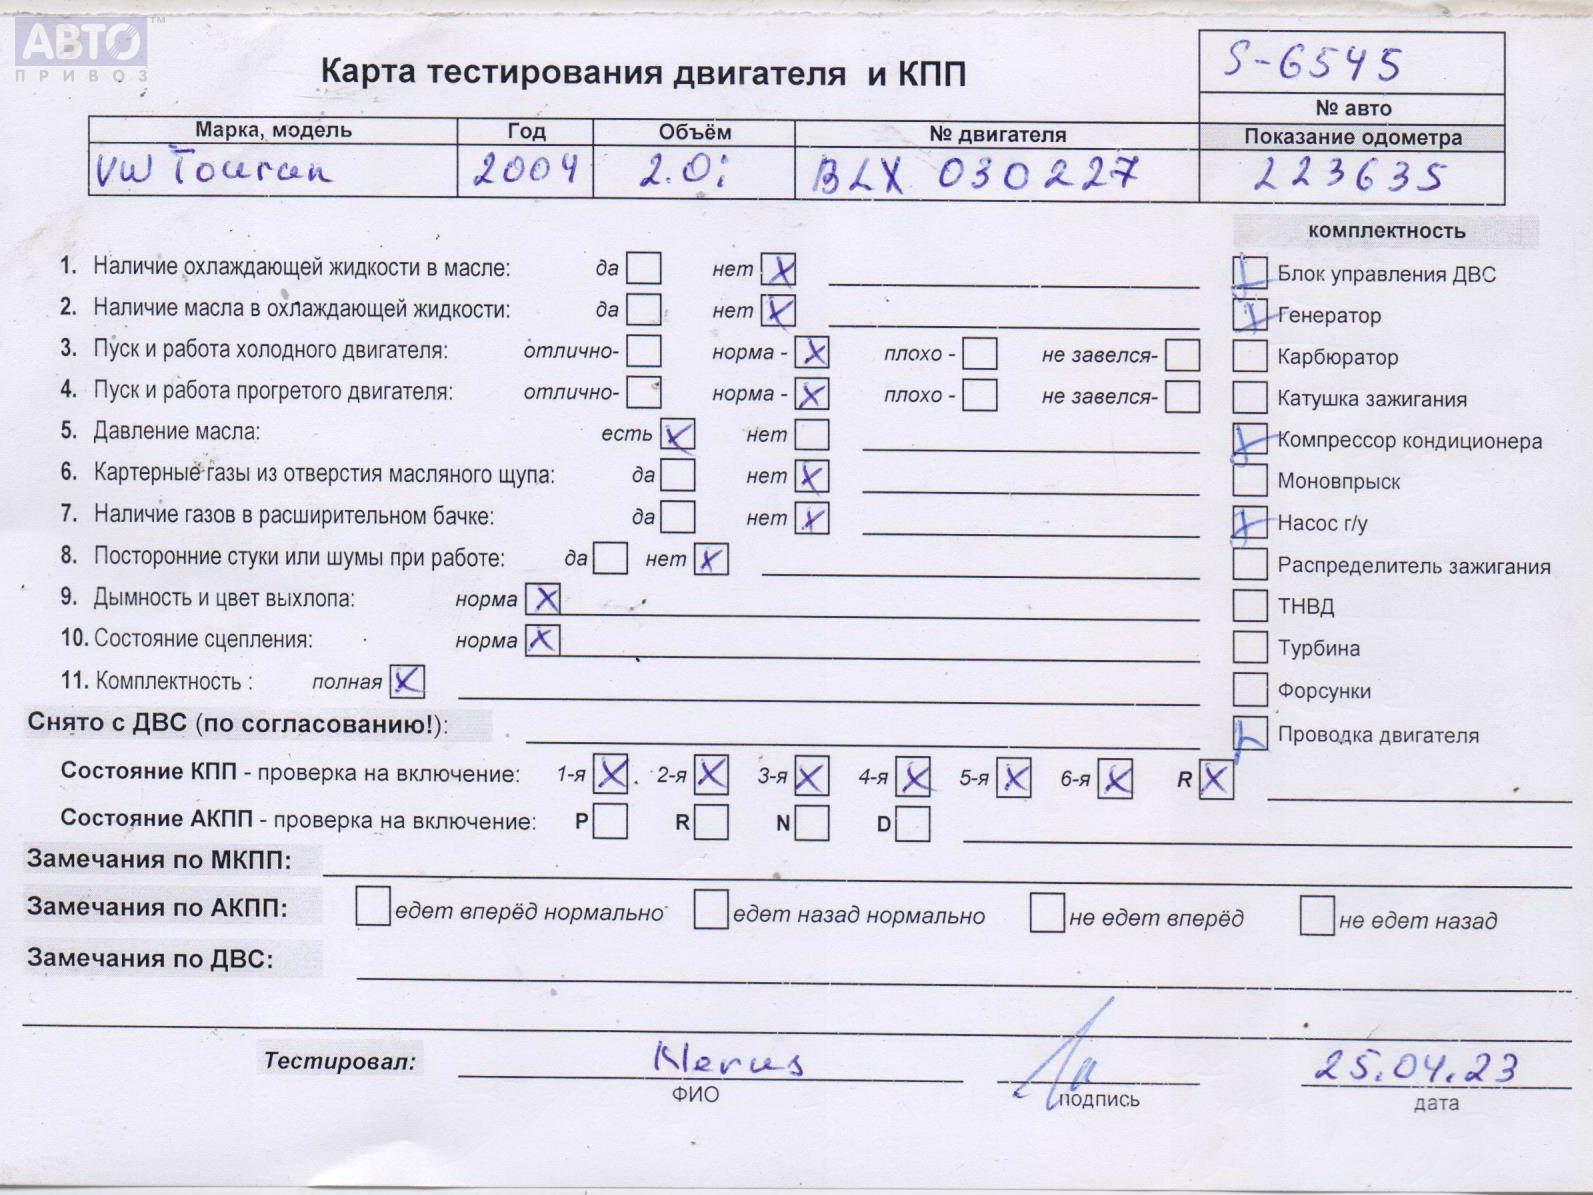 АВТО™
ПРИВОЗ
Карта тестирования двигателя и КПП
S-6545
№ авто
Марка, модель Год Объём № двигателя Показание одометра
VW Touran 2004 2.0i BLX 030227 223635
комплектность
1. Наличие охлаждающей жидкости в масле: да нет X
Блок управления ДВС
2. Наличие масла в охлаждающей жидкости: да нет X
Генератор
3. Пуск и работа холодного двигателя: отлично- норма - X плохо - не завелся-
Карбюратор
4. Пуск и работа прогретого двигателя: отлично- норма - X плохо - не завелся-
Катушка зажигания
5. Давление масла: есть X нет
Компрессор кондиционера
6. Картерные газы из отверстия масляного щупа: да нет X
Моновпрыск
7. Наличие газов в расширительном бачке: да нет X
Насос г/у
8. Посторонние стуки или шумы при работе: да нет X
Распределитель зажигания
9. Дымность и цвет выхлопа: норма X
ТНВД
10. Состояние сцепления: норма X
Турбина
11. Комплектность : полная X
Форсунки
Снято с ДВС (по согласованию!):
Проводка двигателя
Состояние КПП - проверка на включение: 1-я X 2-я X 3-я X 4-я X 5-я X 6-я X R X
Состояние АКПП - проверка на включение: P R N D
Замечания по МКПП:
Замечания по АКПП: едет вперёд нормально едет назад нормально не едет вперёд не едет назад
Замечания по ДВС:
Тестировал: Klerus 25.04.23
ФИО подпись дата